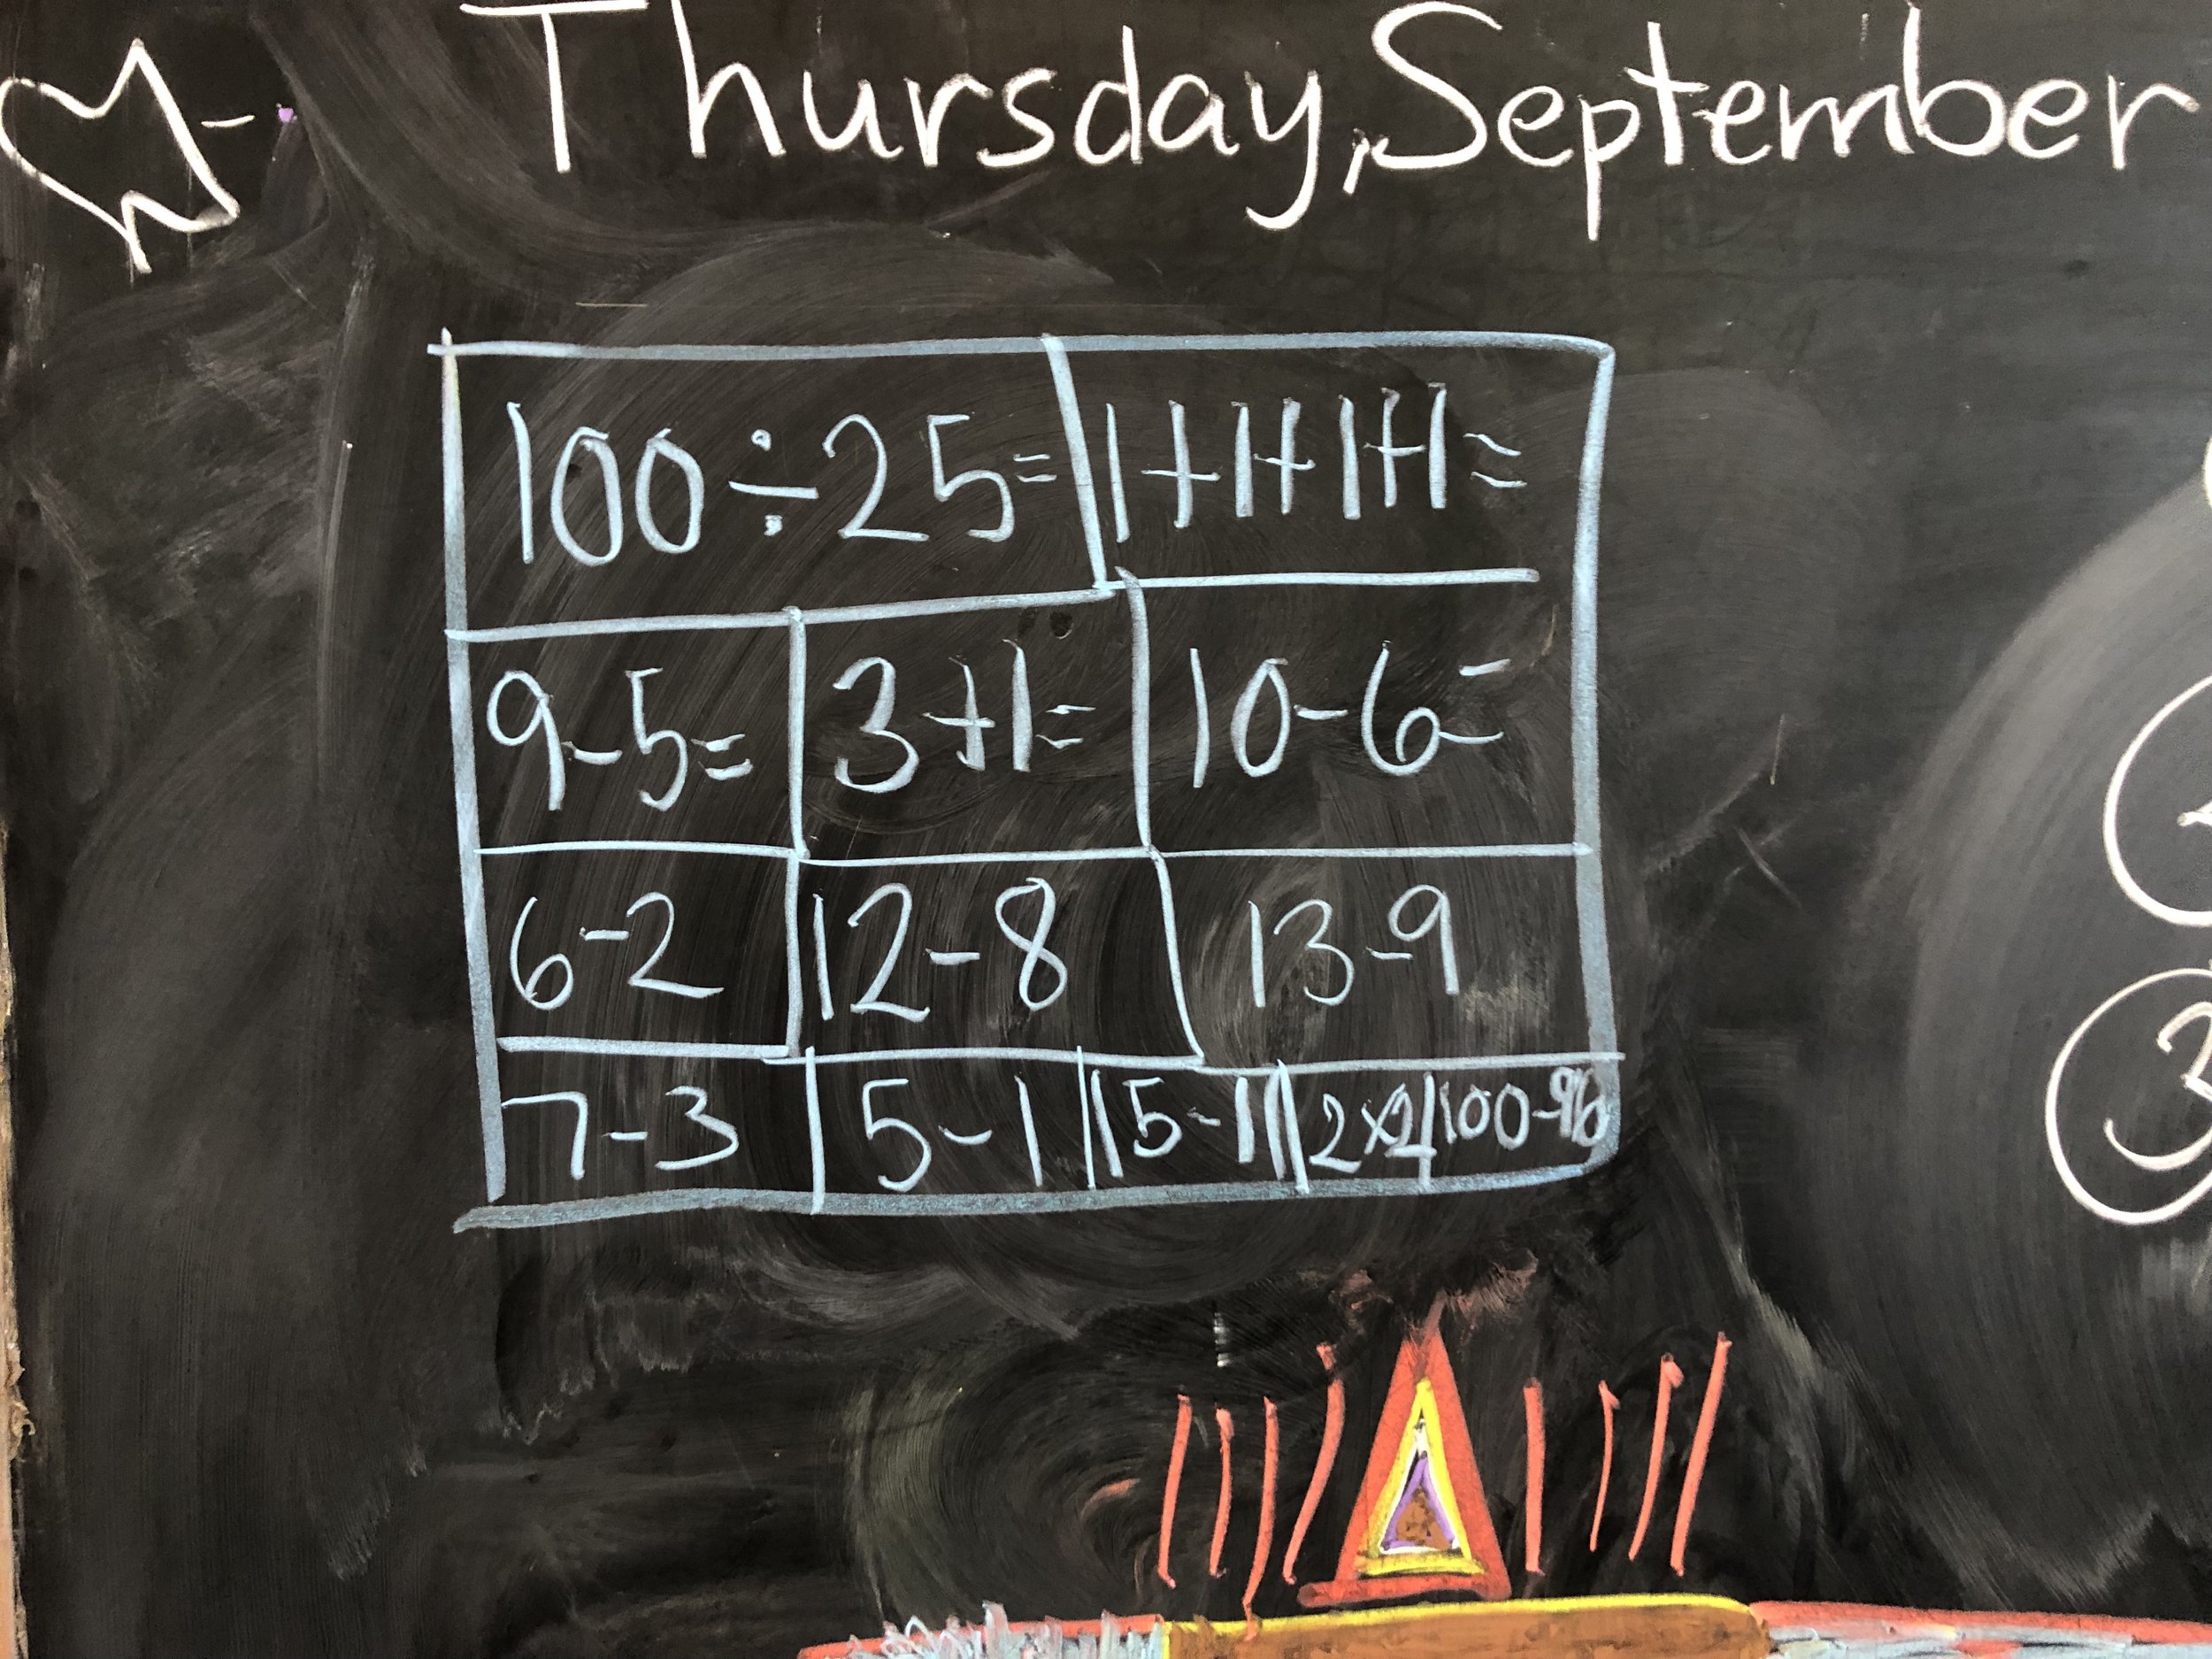 Thursday, September
100÷25= 1+1+1+1=
9-5= 3+1= 10-6=
6-2 12-8 13-9
7-3 5-1 15-11 2x2 100-96
3